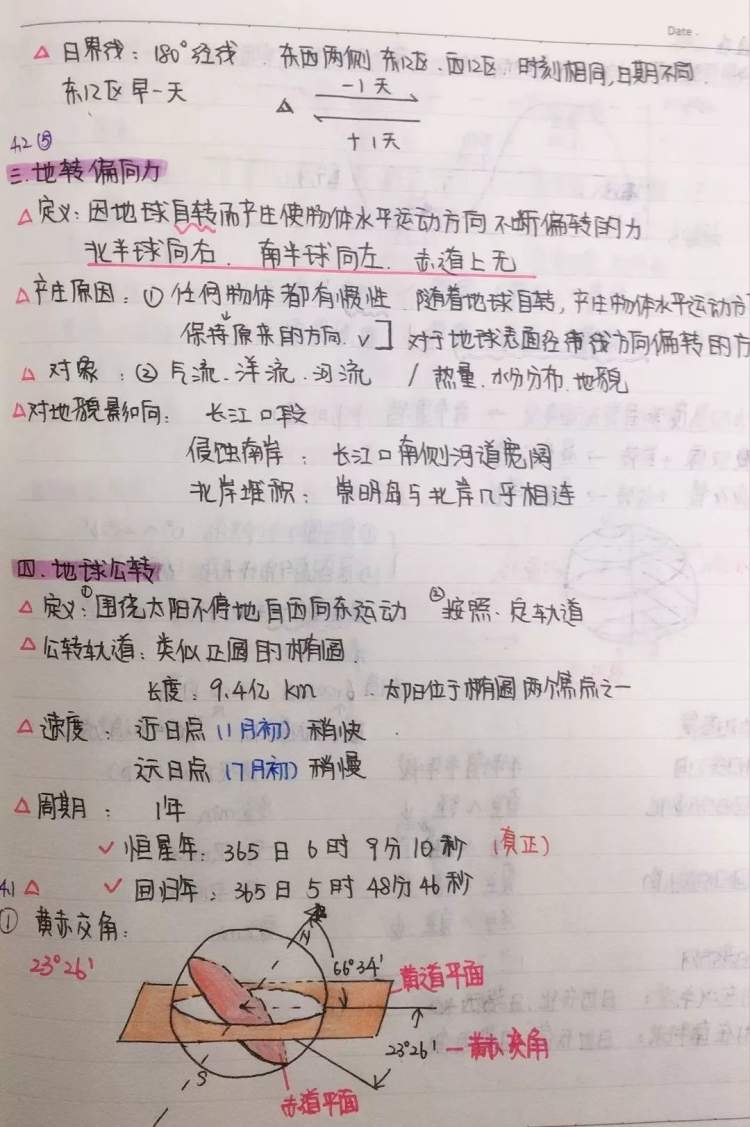 Date
△ 日界线：180°经线．东西两侧 东12区、西12区：时刻相同，日期不同．
东12区早一天 △ －1天
＋1天
4.2 ⑤
三．地转偏向力
△ 定义：因地球自转而产生使物体水平运动方向不断偏转的力
北半球向右．南半球向左．赤道上无
△ 产生原因：① 任何物体都有惯性 随着地球自转，产生物体水平运动方
保持原来的方向．v ] 对于地球表面经纬线方向偏转的方
△ 对象：② 气流、洋流、河流 / 热量、水分分布、地貌
△ 对地貌影响： 长江口段
侵蚀南岸：长江口南侧河道宽阔
北岸堆积：崇明岛与北岸几乎相连
四．地球公转
△ 定义：①围绕太阳不停地自西向东运动 ②按照一定轨道
△ 公转轨道：类似正圆的椭圆．
长度：9.4亿 km ．太阳位于椭圆两个焦点之一
△ 速度：近日点（1月初）稍快．
远日点（7月初）稍慢
△ 周期： 1年
✓ 恒星年：365日6时9分10秒（真正）
4.1 △ ✓ 回归年：365日5时48分46秒
① 黄赤交角：
23°26′
N
66°34′
黄道平面
23°26′ — 黄赤交角
S
赤道平面